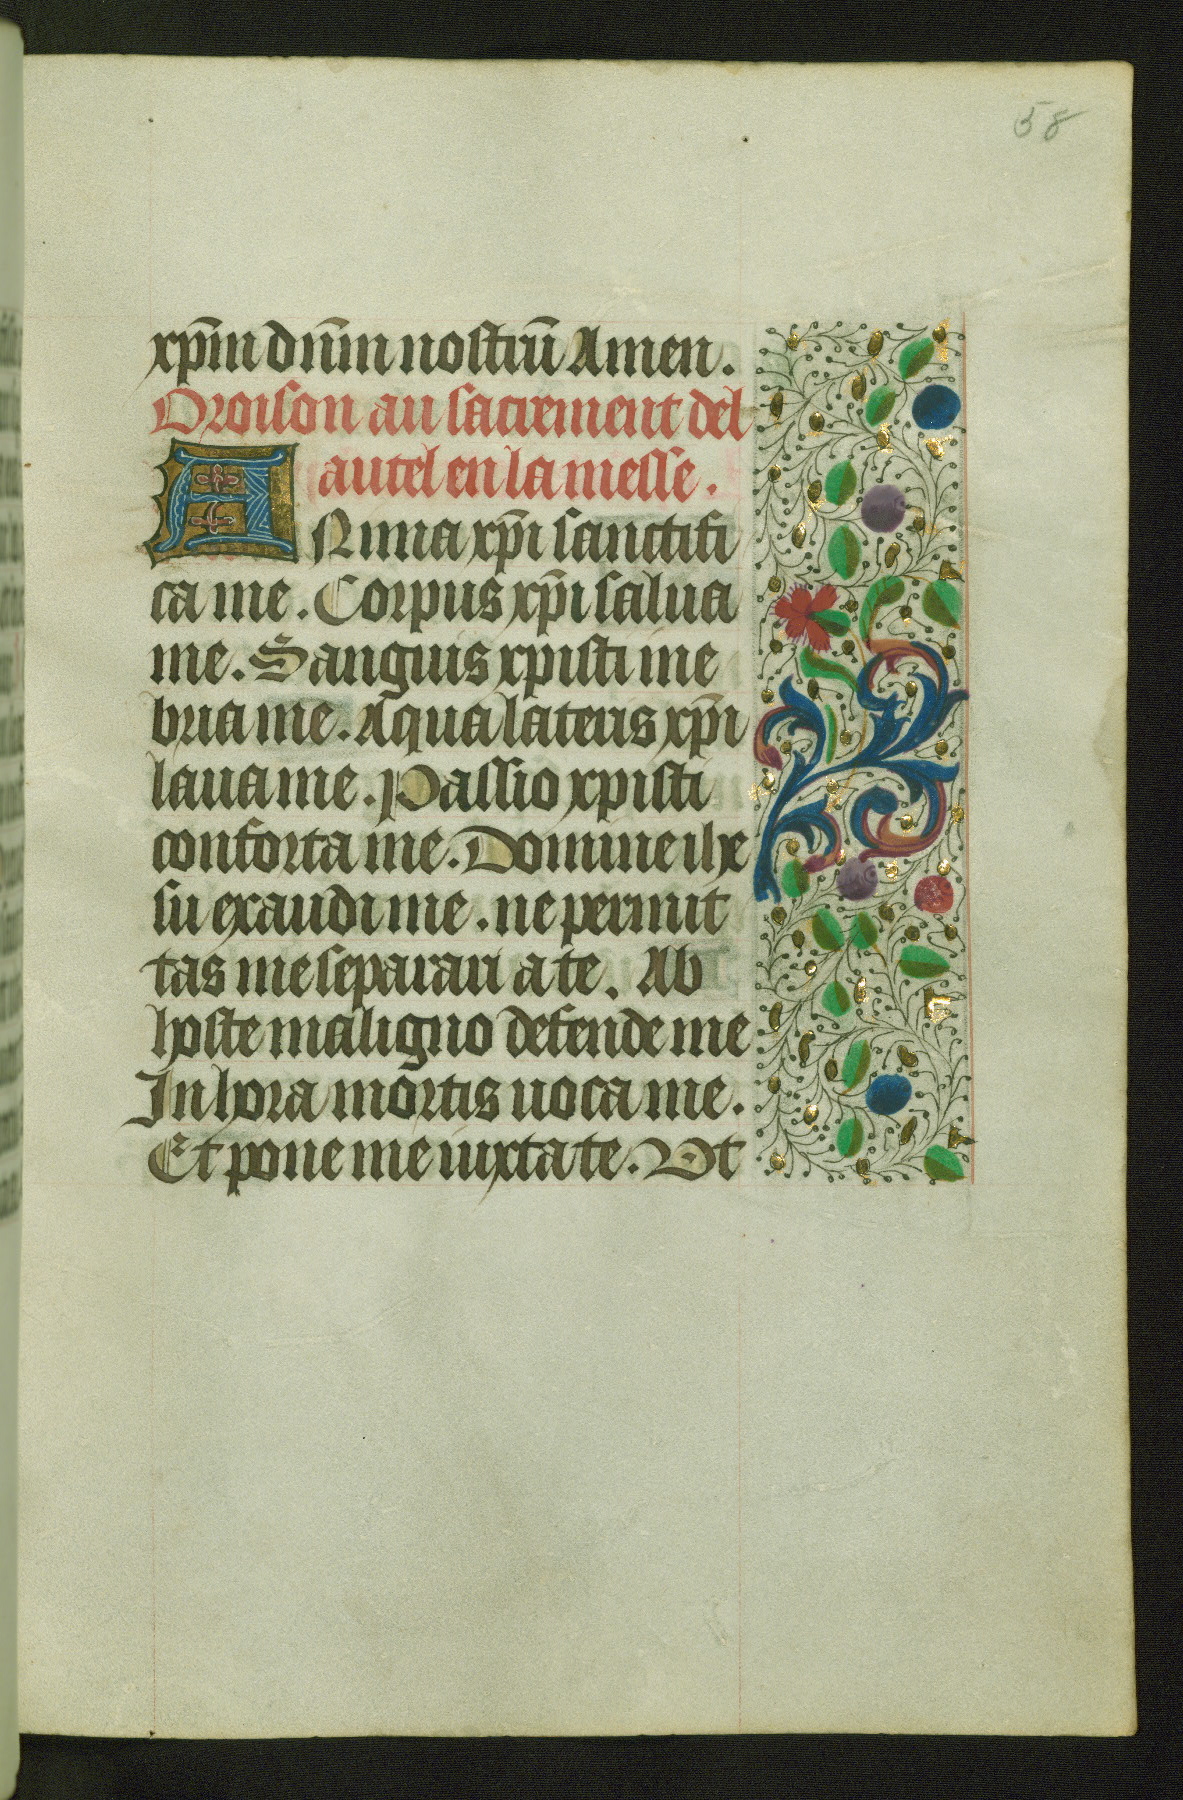 58
xp̄m dn̄m nostrū Amen.
Oroison au sacrement del
autel en la messe.
ANima xp̄i sanctifi
ca me. Corpus xp̄i salua
me. Sanguis xpisti ine
bria me. Aqua lateris xp̄i
laua me. Passio xpisti
conforta me. Domine ihe
su exaudi me. ne permit
tas me separari a te. Ab
hoste maligno defende me
In hora mortis uoca me.
Et pone me iuxta te. Vt